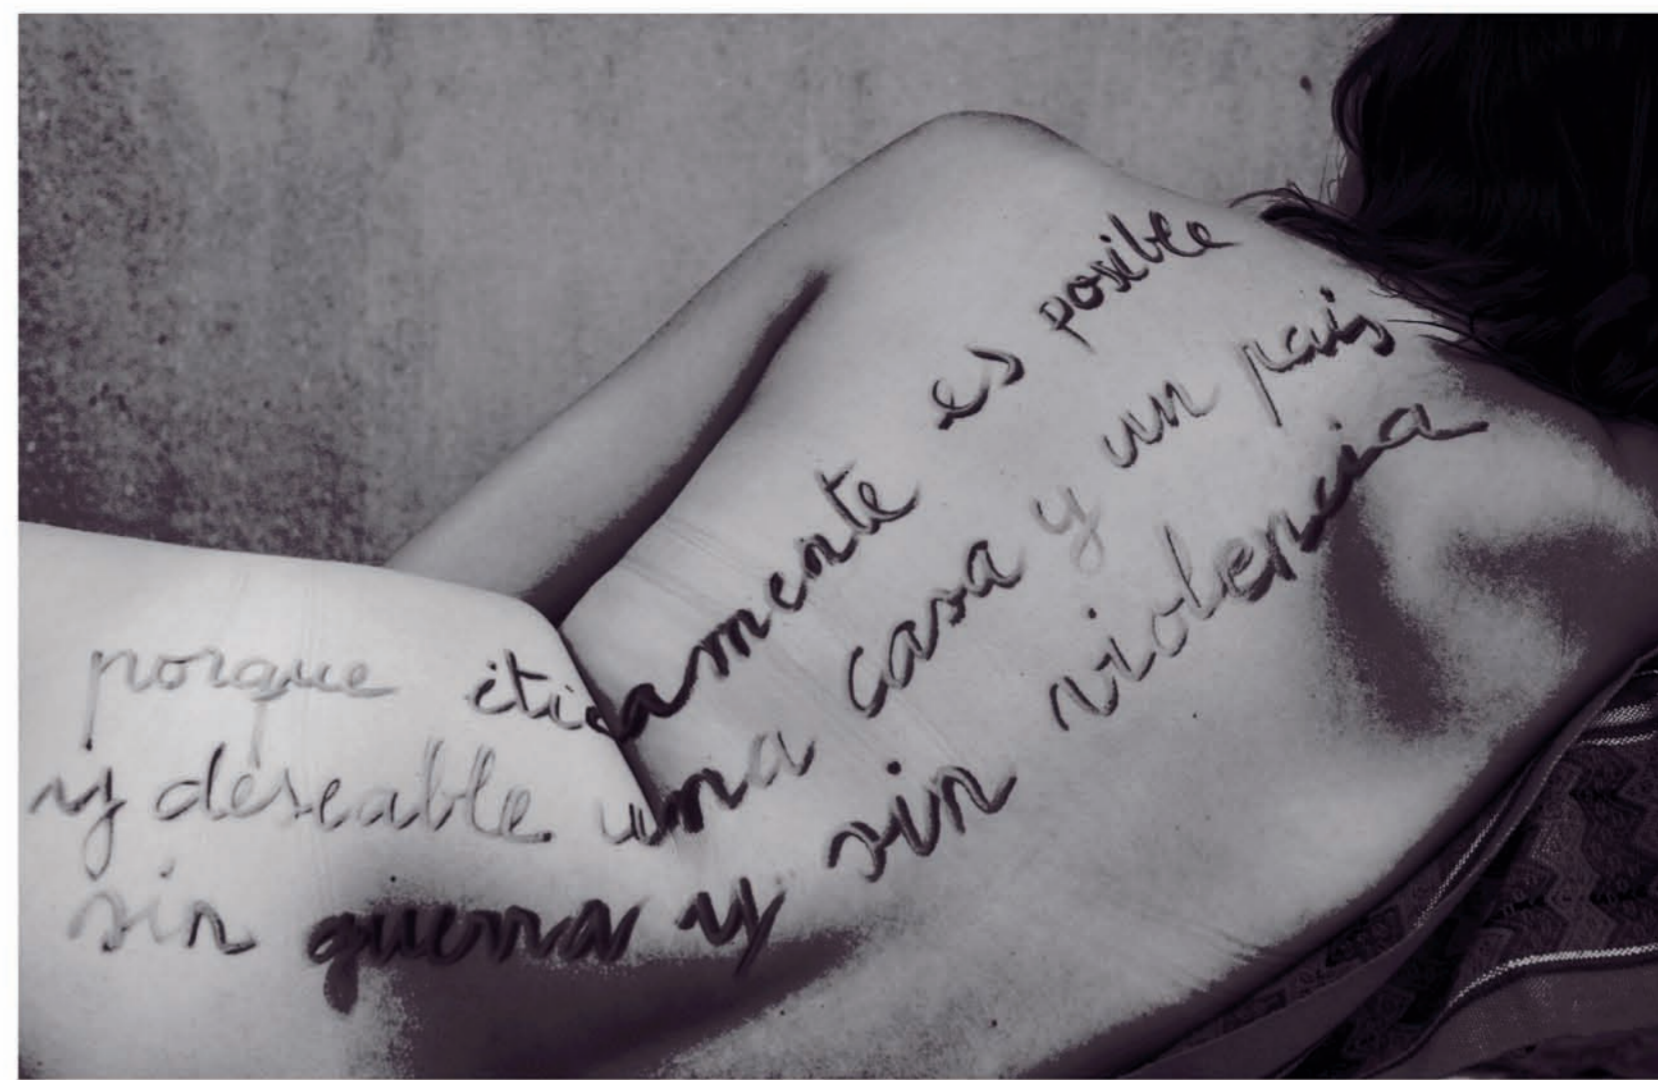 porque éticamente es posible
y deseable una casa y un país
sin guerra y sin violencia